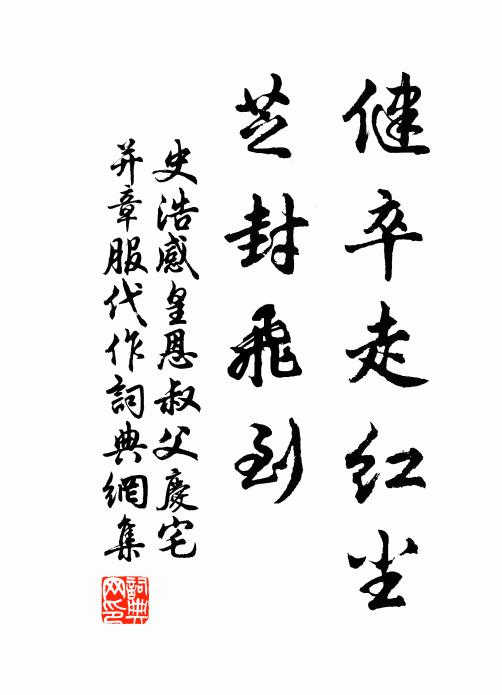 健卒走红尘
芝封飛到
史浩感皇恩叔父慶宅
并章服代作詞典網集
詞典
网印